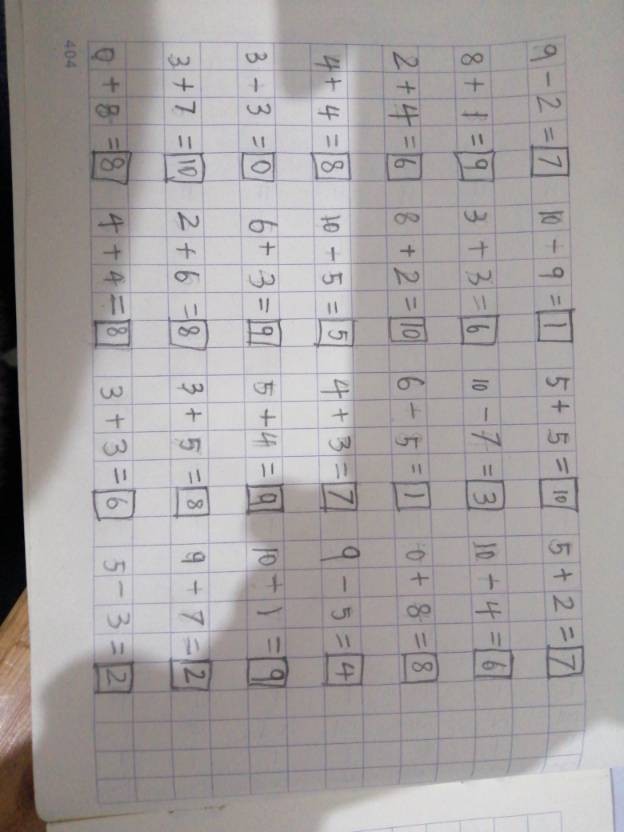 9 - 2 = 7 10 - 9 = 1 5 + 5 = 10 5 + 2 = 7
8 + 1 = 9 3 + 3 = 6 10 - 7 = 3 10 - 4 = 6
2 + 4 = 6 8 + 2 = 10 6 - 5 = 1 0 + 8 = 8
4 + 4 = 8 10 - 5 = 5 4 + 3 = 7 9 - 5 = 4
3 - 3 = 0 6 + 3 = 9 5 + 4 = 9 10 - 1 = 9
3 + 7 = 10 2 + 6 = 8 3 + 5 = 8 9 - 7 = 2
0 + 8 = 8 4 + 4 = 8 3 + 3 = 6 5 - 3 = 2
404